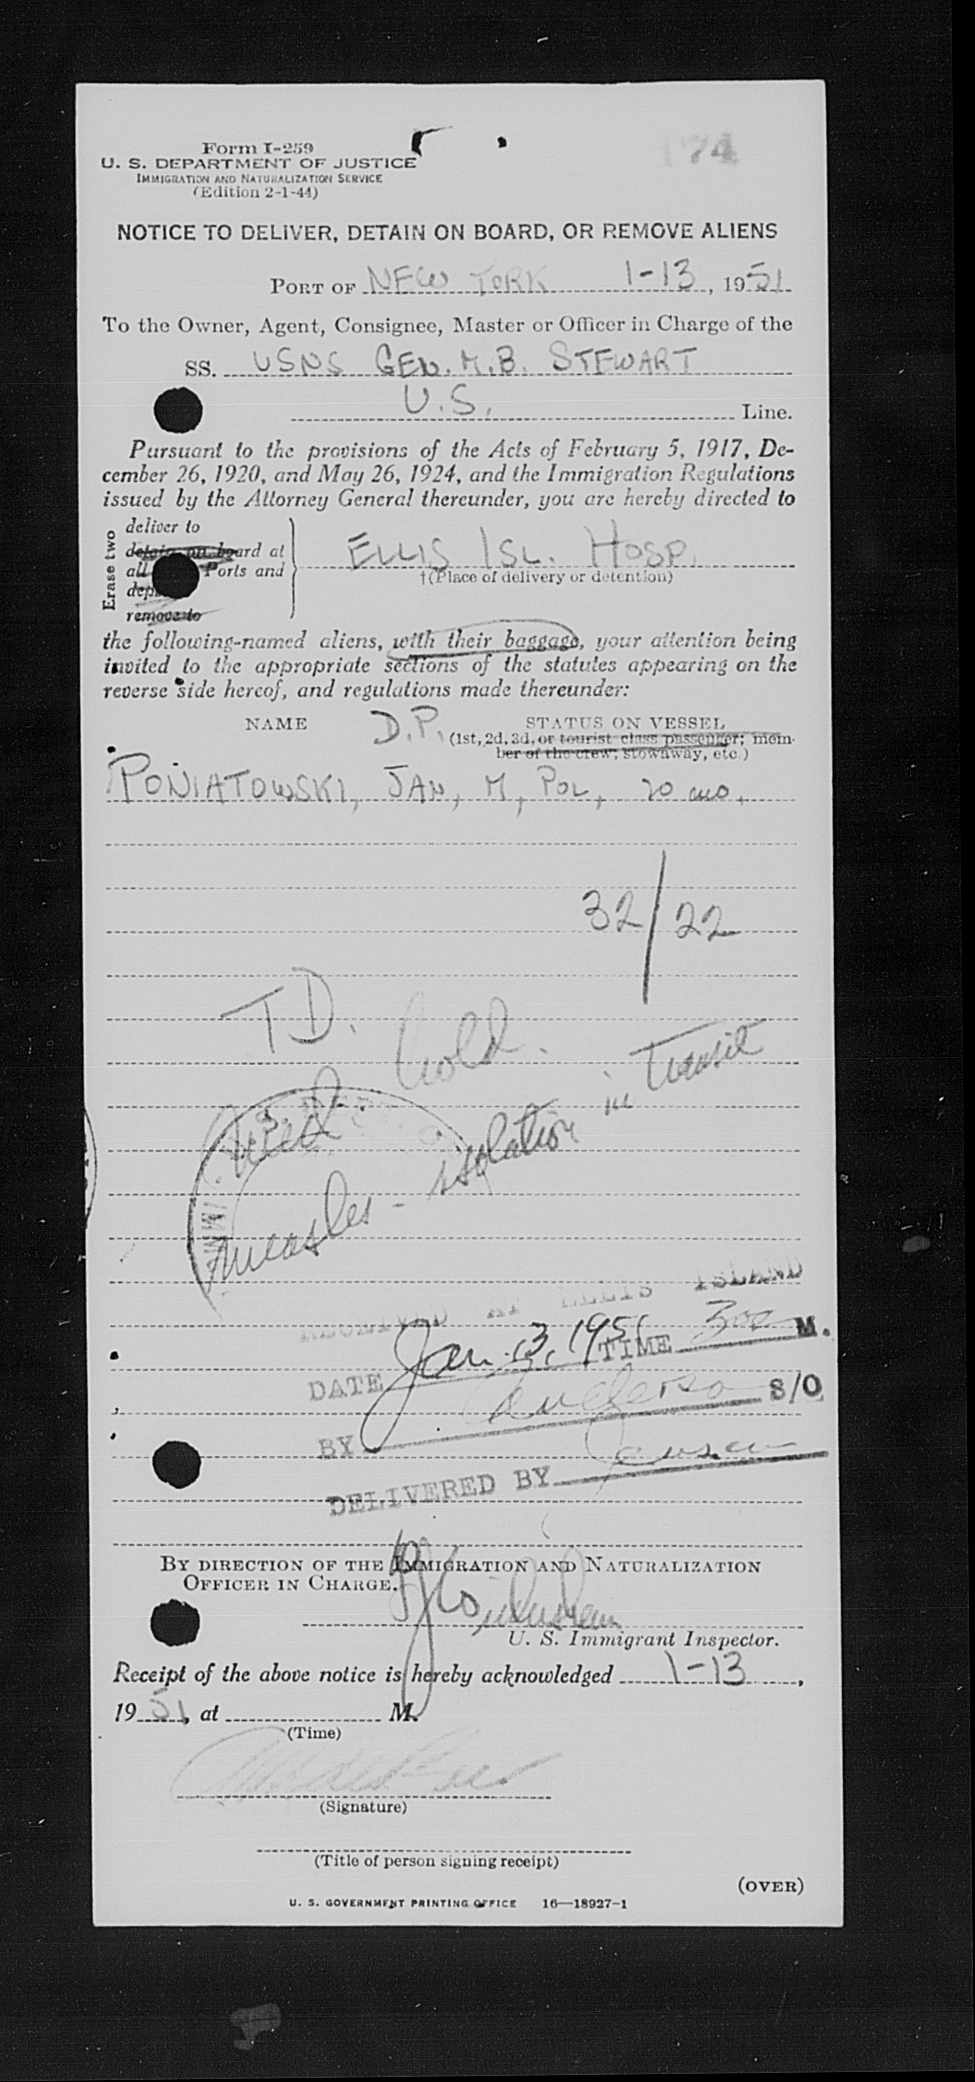 Form I-259
74
U. S. DEPARTMENT OF JUSTICE
IMMIGRATION AND NATURALIZATION SERVICE
(Edition 2-1-44)
NOTICE TO DELIVER, DETAIN ON BOARD, OR REMOVE ALIENS
PORT OF NEW YORK 1-13, 1951
To the Owner, Agent, Consignee, Master or Officer in Charge of the
SS. USNS GEN. M.B. STEWART
U.S. Line.
Pursuant to the provisions of the Acts of February 5, 1917, De-
cember 26, 1920, and May 26, 1924, and the Immigration Regulations
issued by the Attorney General thereunder, you are hereby directed to
Erase two
deliver to
detain on board at
all Ports and
remove to
ELLIS ISL. HOSP.
†(Place of delivery or detention)
the following-named aliens, with their baggage, your attention being
invited to the appropriate sections of the statutes appearing on the
reverse side hereof, and regulations made thereunder:
NAME D.P. STATUS ON VESSEL
(1st, 2d, 3d, or tourist class passenger; mem-
ber of the crew; stowaway, etc.)
PONIATOWSKI, JAN, M, POL, 20 mo.
32/22
T.D.
Med Hold.
measles - isolation in transit
RECEIVED AT ELLIS ISLAND
DATE Jan. 13, 1951 TIME 300 M.
BY S/O
DELIVERED BY
BY DIRECTION OF THE IMMIGRATION AND NATURALIZATION
OFFICER IN CHARGE.
U. S. Immigrant Inspector.
Receipt of the above notice is hereby acknowledged 1-13,
1951, at M.
(Time)
(Signature)
(Title of person signing receipt)
(OVER)
U. S. GOVERNMENT PRINTING OFFICE 16—18927-1